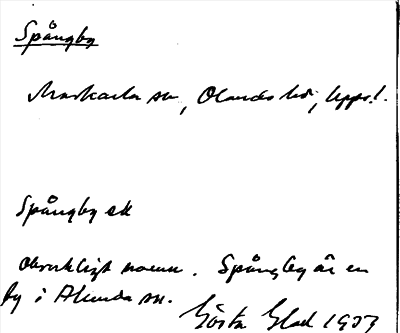 Spångby
Morkarla sn, Olands hd, Uppl.
Spångby sk
obrukligt namn. Spångby är en
by i Alunda sn.
Gösta Glad 1937